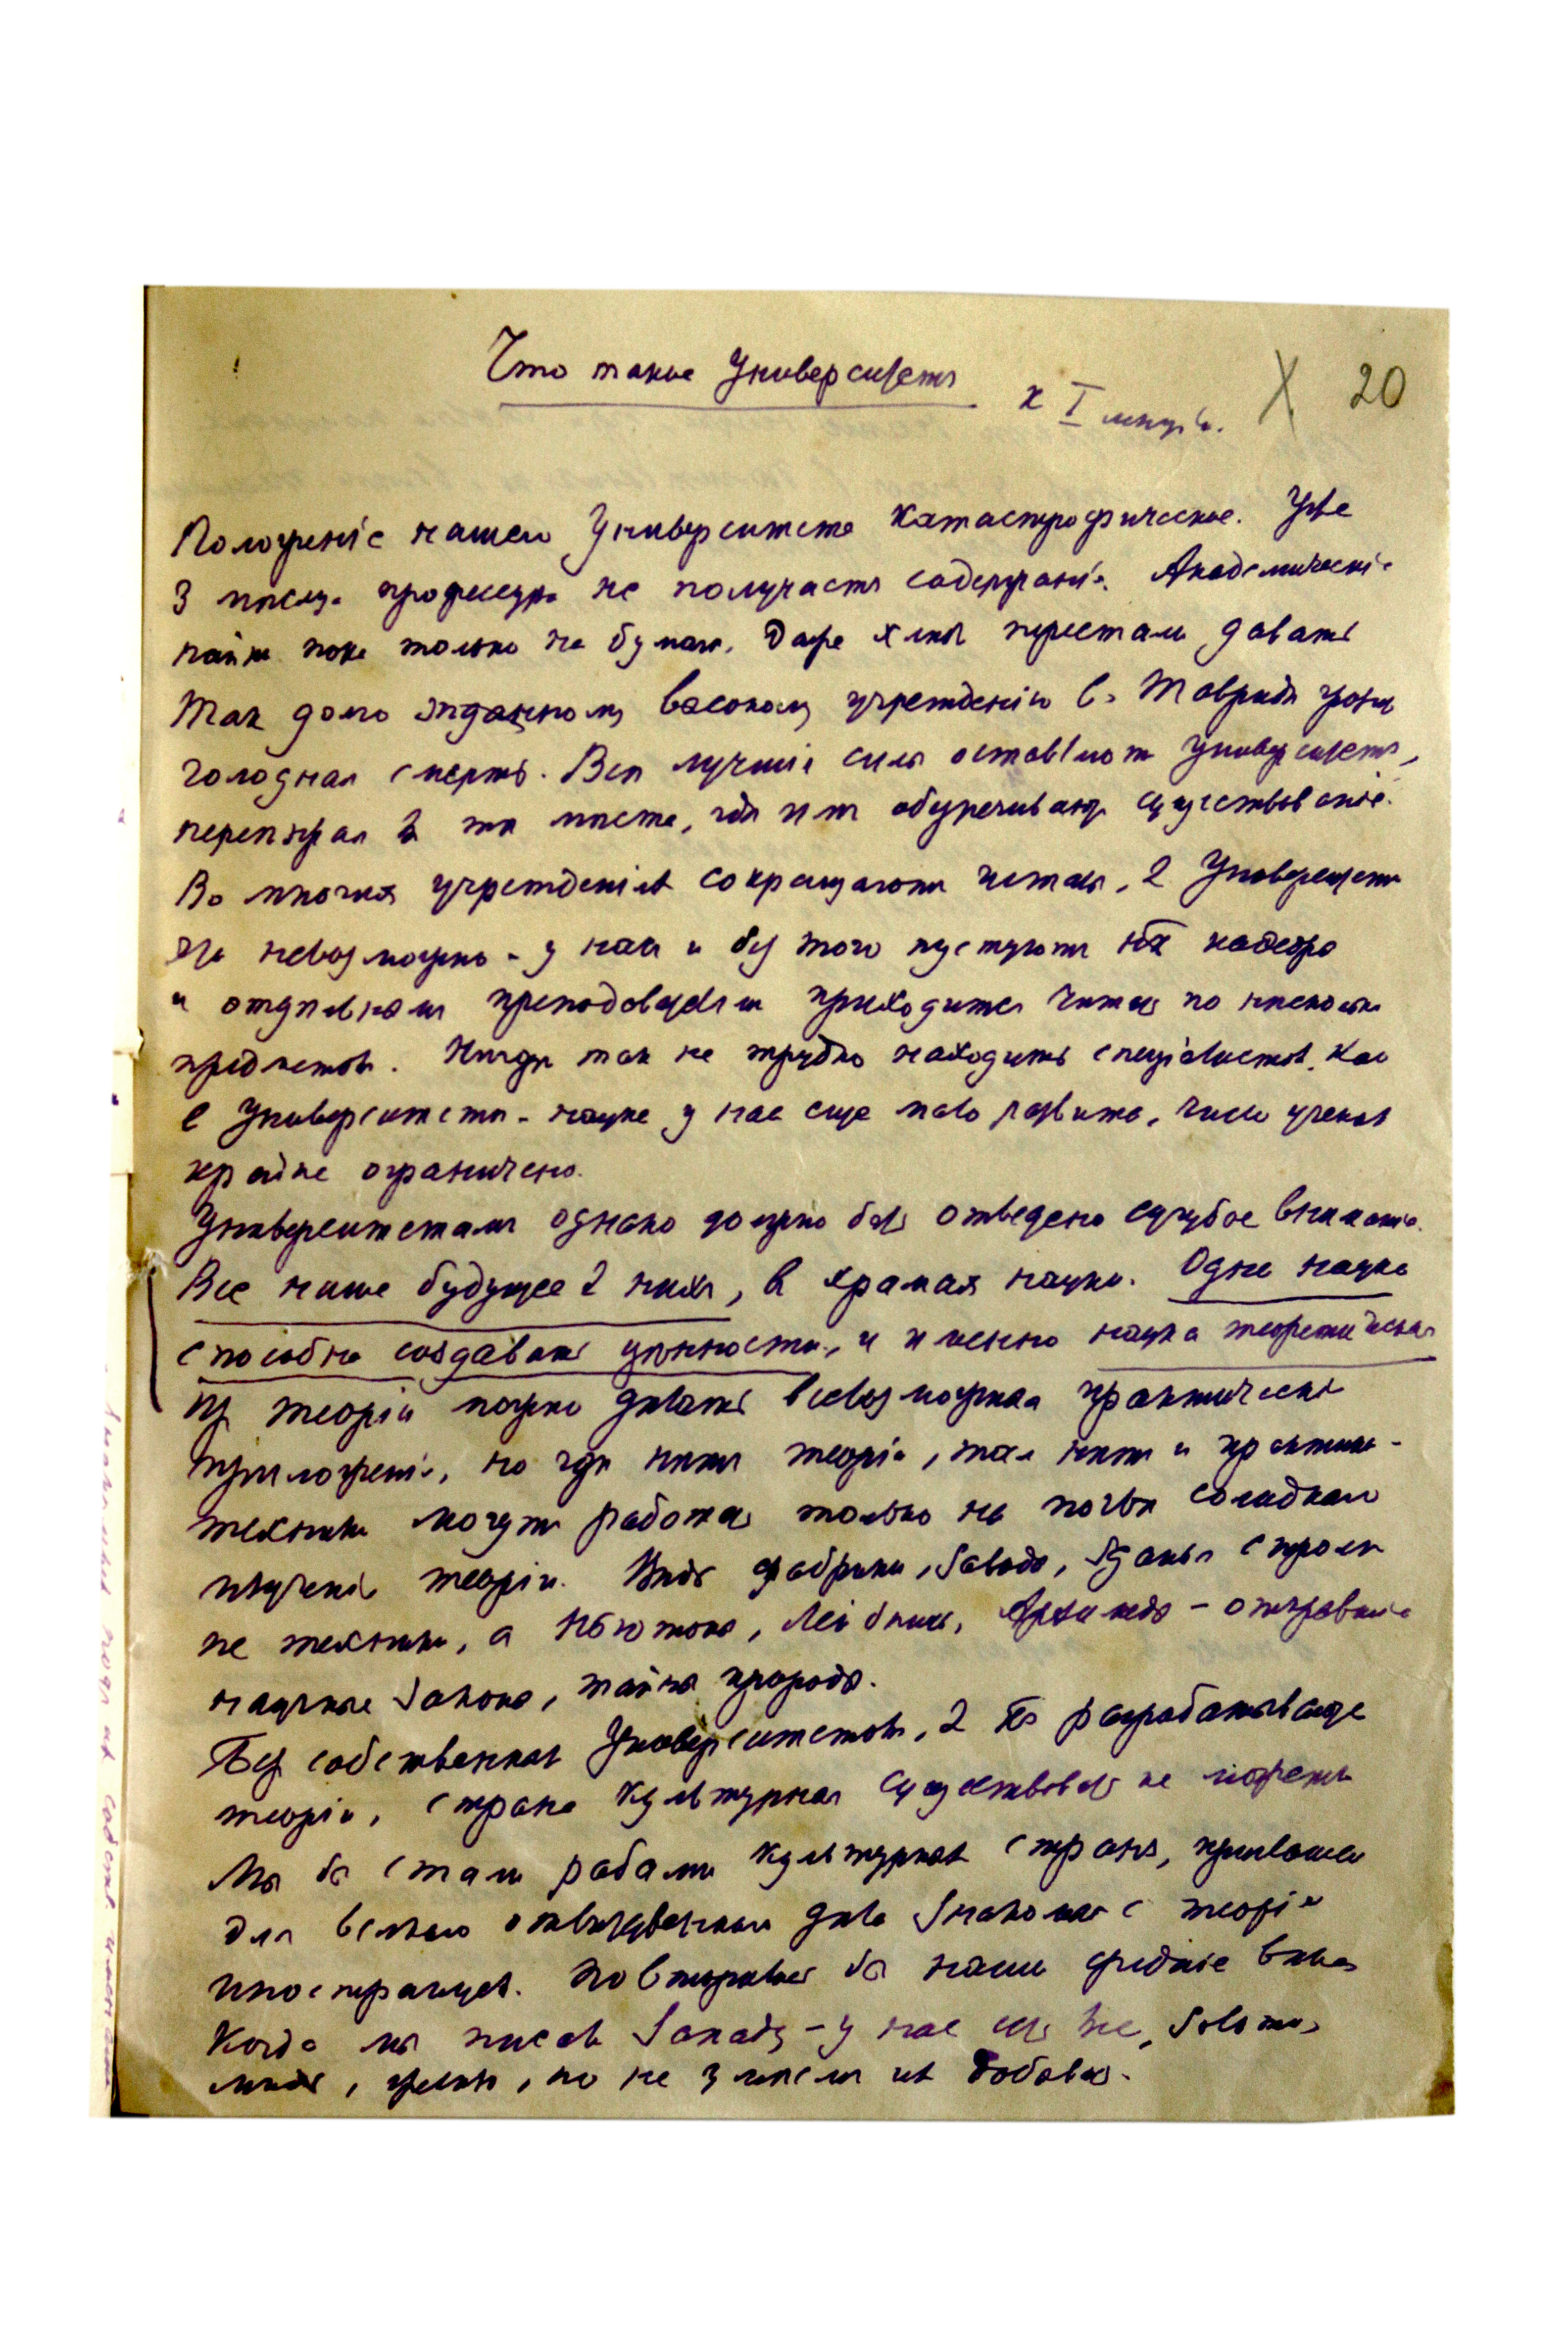 Что такое Университетъ
к I
X 20
Положеніе нашего Университета катастрофическое. Уже
3 мѣсяца профессура не получаетъ содержанія. Академическіе
пайки пока только на бумагѣ. Даже хлѣбъ перестали давать
Так долго жданному высокому учрежденію въ Тавридѣ грозит
голодная смерть. Всѣ лучшія силы оставляютъ Университетъ,
переѣзжая в тѣ мѣста, гдѣ им обезпечивают существованіе.
Во многихъ учрежденіях сокращаютъ штаты, в Университетѣ
это невозможно - у нас и без того пустуютъ кафедры
и отдѣльнымъ преподавателям приходится читать по нѣсколько
предметовъ. Нигдѣ так не трудно находить спеціалистов, как
в Университетѣ - наука у нас еще мало развита, число ученых
крайне ограничено.
Университетамъ однако должно быть отведено сугубое вниманіе.
Все наше будущее в нихъ, в храмах науки. Одна наука
способна создавать цѣнности, и именно наука теоретическая
Из теоріи можно дѣлать всевозможныя практическія
приложенія, но гдѣ нѣтъ теоріи, там нѣтъ и практики -
техники могутъ работать только на почвѣ солиднаго
изученія теоріи. Вѣдь фабрики, заводы, зданья строят
не техники, а Ньютоны, Лейбницы, Архимеды - открывшіе
научные законы, тайны природы.
Без собственных Университетовъ, разрабатывающих
теоріи, страна культурная существовать не может
Мы бы стали рабами культурных стран, приглашая
для всякаго дѣла знакомых с теоріей
иностранцев. Повторились бы наши средніе вѣка
Когда мы писали Западу - у нас есть все, золото,
мѣдь, но не умѣем их добывать.